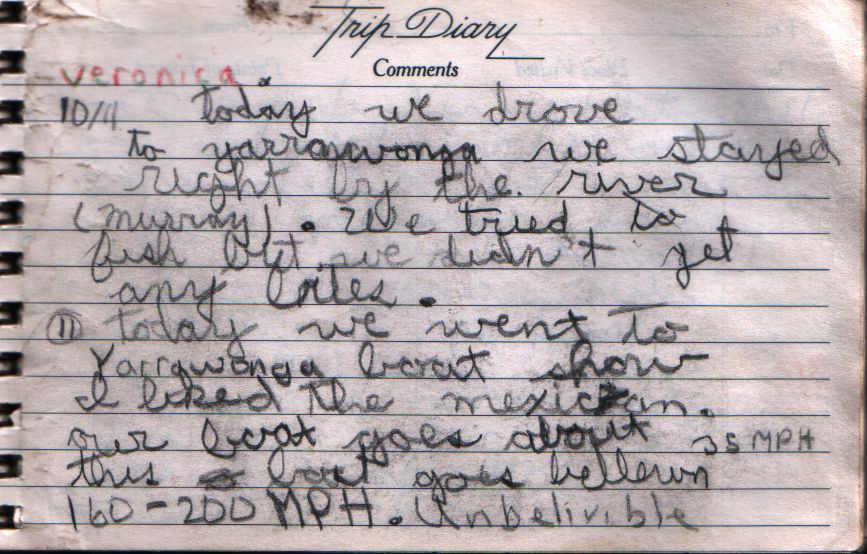 Trip Diary
Comments
veronica.
10/4 today we drove
to yarrawonga we stayed
right by the river
(murray). We tried to
fish but we didn't get
any bites.
11 today we went to
Yarrawonga boat show
I liked the mexican.
our boat goes about 35 MPH
this boat goes bellewn
160-200 MPH. Unbelivible